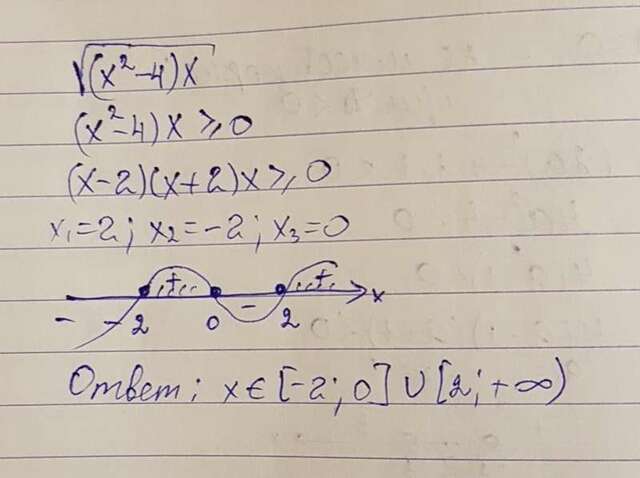 √(x²-4)x
(x²-4)x ⩾ 0
(x-2)(x+2)x ⩾ 0
x₁=2; x₂=-2; x₃=0
+ +
- -2 0 - 2 x
Ответ: x ∈ [-2; 0] ∪ [2; +∞)